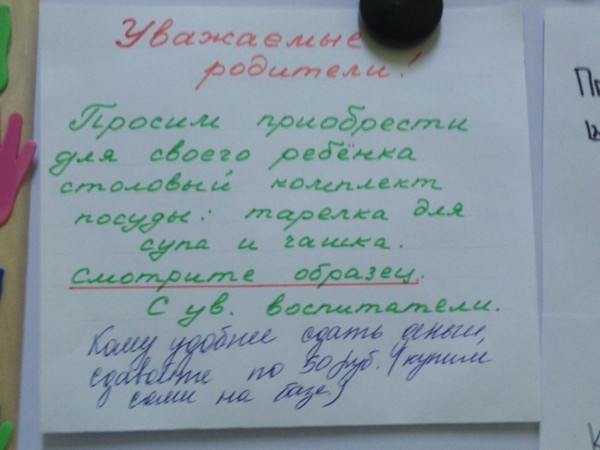 Уважаемые
родители!
Просим приобрести
для своего ребёнка
столовый комплект
посуды: тарелка для
супа и чашка.
смотрите образец.
С ув. воспитатели.
Кому удобнее сдать деньги,
сдавайте по 50 руб. (купим
сами на базе.)